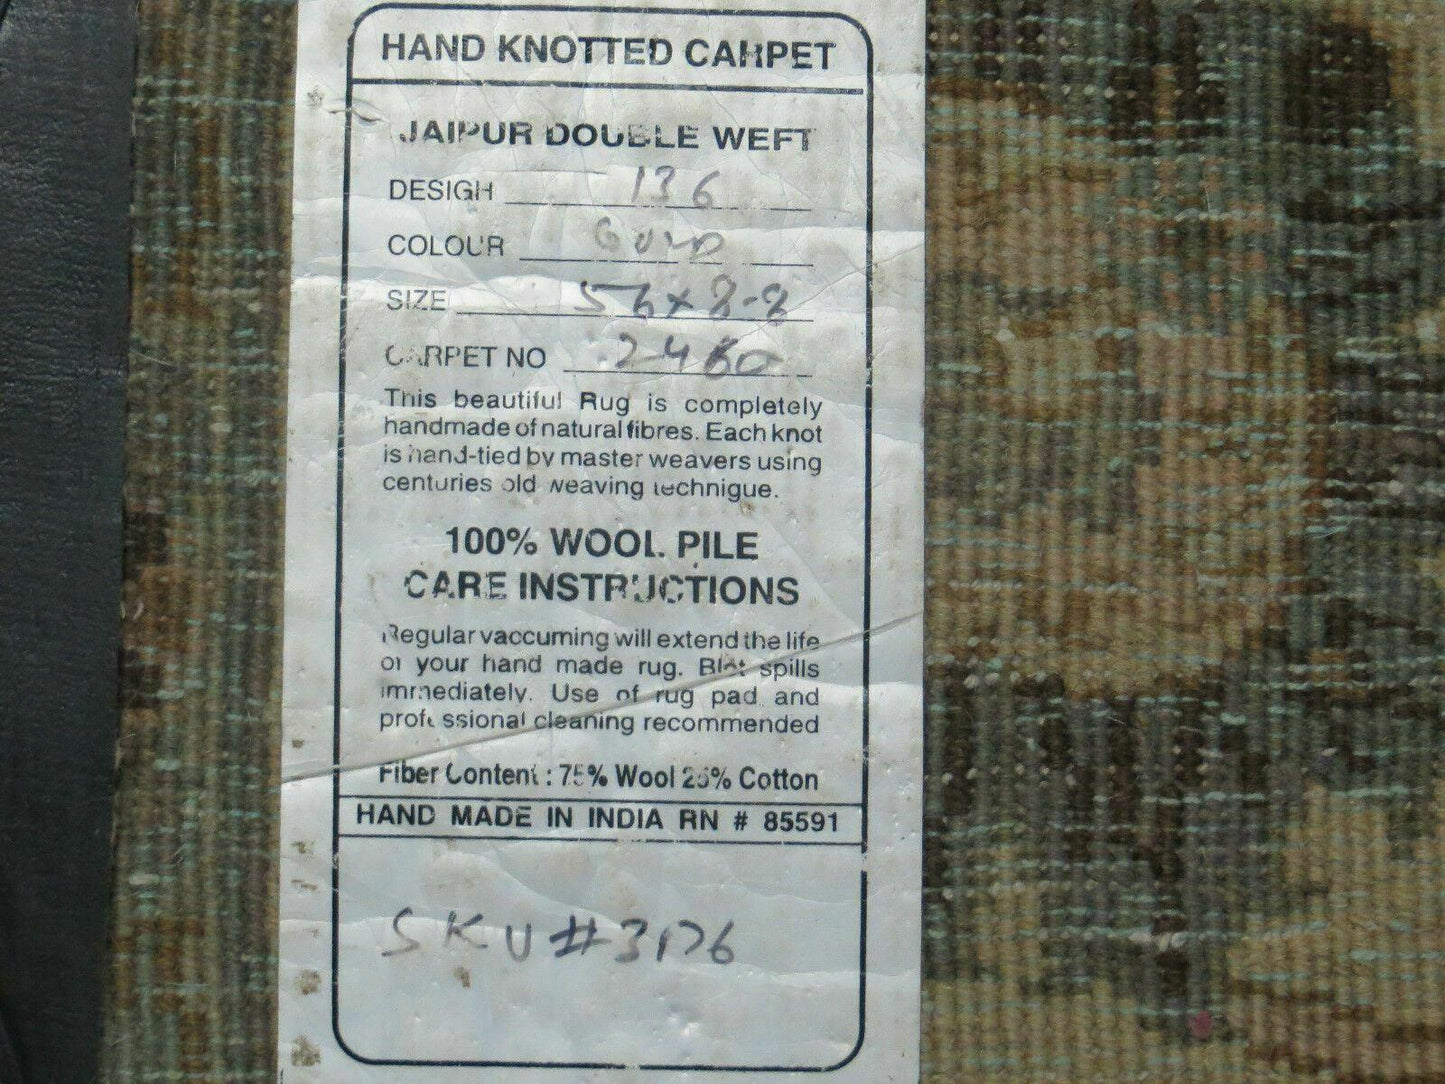 HAND KNOTTED CARPET
JAIPUR DOUBLE WEFT
DESIGH 136
COLOUR GOLD
SIZE 56 x 8-8
CARPET NO 2460
This beautiful Rug is completely
handmade of natural fibres. Each knot
is hand-tied by master weavers using
centuries old weaving technigue.
100% WOOL PILE
CARE INSTRUCTIONS
Regular vaccuming will extend the life
of your hand made rug. Blot spills
immediately. Use of rug pad and
professional cleaning recommended
Fiber Content : 75% Wool 25% Cotton
HAND MADE IN INDIA RN # 85591
SKU#3176